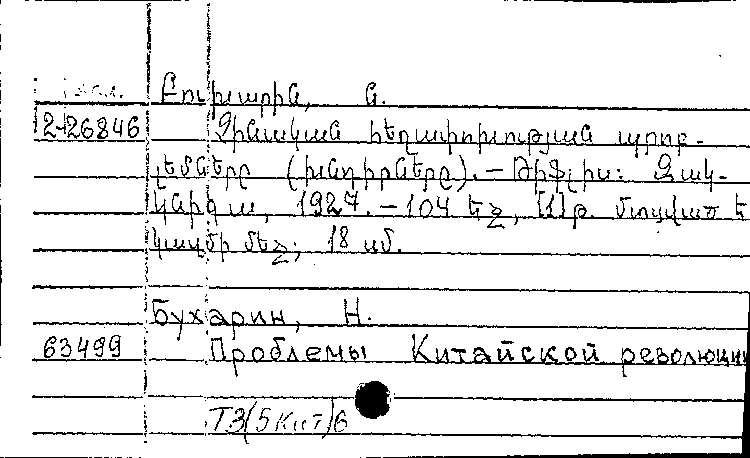 Բուխարին, Ն.
2-26846 Չինական հեղափոխության պրոբ-
լեմները (խնդիրները). – Թիֆլիս: Զակ-
կնիգա, 1927. – 104 եջ, [1] թ. մտցված է
կազմի մեջ; 18 սմ.
Бухарин, Н.
63499 Проблемы Китайской революции
Т3(5Кит)6